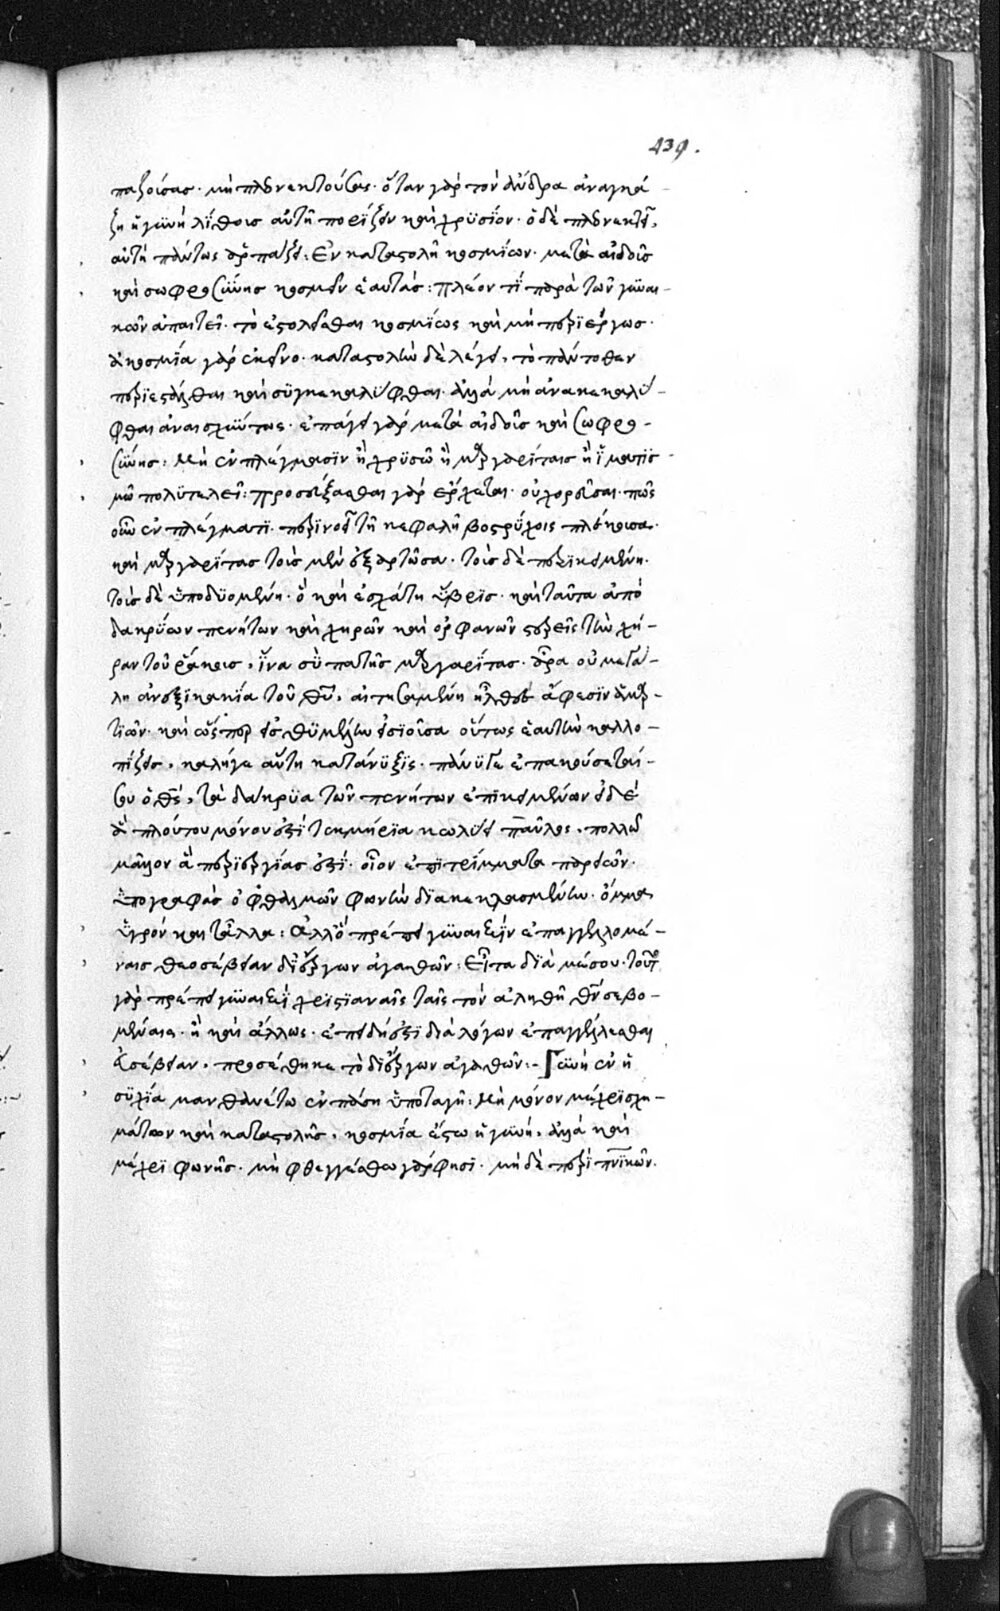 439.
παζούσας. μὴ πλεονεκτούσας. ὅταν γὰρ τὸν ἄνδρα ἀναγκά-
ζῃ ἡ γυνὴ λίθοις αὐτῇ πορίζειν καὶ χρυσίον. ὁ δὲ πλεονεκτεῖ,
αὐτὴ πάντως ἁρπάζει: Ἐν καταστολῇ κοσμίῳ. μετὰ αἰδοῦς
καὶ σωφροσύνης κοσμεῖν ἑαυτάς: πλέον τί παρὰ τῶν γυναι-
κῶν ἀπαιτεῖ. τὸ ἐστολίσθαι κοσμίως καὶ μὴ περιέργως.
ἀκοσμία γὰρ ἐκεῖνο. καταστολὴν δὲ λέγει, τὸ πάντοθεν
περιεστάλθαι καὶ συγκεκαλύφθαι. ἀλλὰ μὴ ἀνακεκαλύ-
φθαι ἀναισχύντως. ἐπάγει γὰρ μετὰ αἰδοῦς καὶ σωφρο-
σύνης: Μὴ ἐν πλέγμασιν ἢ χρυσῷ ἢ μαργαρίταις ἢ ἱματισ-
μῷ πολυτελεῖ: προσεύξασθαι γὰρ ἔρχεται. οὐ χορεῦσαι. πῶς
οὖν ἐν πλέγματι. περίκειται τῇ κεφαλῇ βοστρύχοις
καὶ μαργαρίτας τοῖς μὲν ἐξαρτῶσα. τοῖς δὲ περικειμένη.
τοῖς δὲ ὑποδυομένη. ὃ καὶ ἐσχάτη ὕβρις. καὶ ταῦτα ἀπὸ
δακρύων πενήτων καὶ χηρῶν καὶ ὀρφανῶν στερεῖς τὴν χή-
ραν τοῦ ῥάκους, ἵνα σὺ πατῇς μαργαρίτας. ἆρα οὐ μεγά-
λη ἀνεξικακία τοῦ θυ, αἰτησαμένη ἦλθες ἄφεσιν ἁμαρ-
τιῶν. καὶ ὥσπερ εἰς θυμέλην εἰσιοῦσα οὕτως ἑαυτὴν καλλω-
πίζεις, καλήγε αὕτη κατάνυξις. πάνυ γε ἐπακούσεταί-
σου ὁ θς, τὰ δάκρυα τῶν πενήτων ἐπικειμένων
ἃ πλούτου μόνου ἐστὶ τεκμήρια κωλύει παῦλος, πολλῷ
μᾶλλον ἃ περιεργίας ἐστί. οἷον ἐπιτρίμματα παρειῶν.
ὑπογραφὰς ὀφθαλμῶν φωνὴν διακεκλασμένην. ὄμμα
ὑγρὸν καὶ τἆλλα: Ἀλλ' ὃ πρέπει γυναιξὶν ἐπαγγελλομέ-
ναις θεοσέβειαν δι' ἔργων ἀγαθῶν: Εἶτα διὰ μέσου. τοῦτο
γὰρ πρέπει γυναιξὶ χριστιαναῖς ταῖς τὸν ἀληθῆ θν σεβο-
μέναις. ἢ καὶ ἄλλως. ἐπειδὴ ἔστι διὰ λόγων ἐπαγγέλλεσθαι
εὐσέβειαν, προσέθηκε τὸ δι' ἔργων ἀγαθῶν:- Γυνὴ ἐν ἡ-
συχίᾳ μανθανέτω ἐν πάσῃ ὑποταγῇ: Μὴ μόνον μέχρι σχη-
μάτων καὶ καταστολῆς, κοσμία ἔστω ἡ γυνή, ἀλλὰ καὶ
μέχρι φωνῆς. μὴ φθεγγέσθω γὰρ φησὶ. μὴ δὲ περὶ πνικῶν.